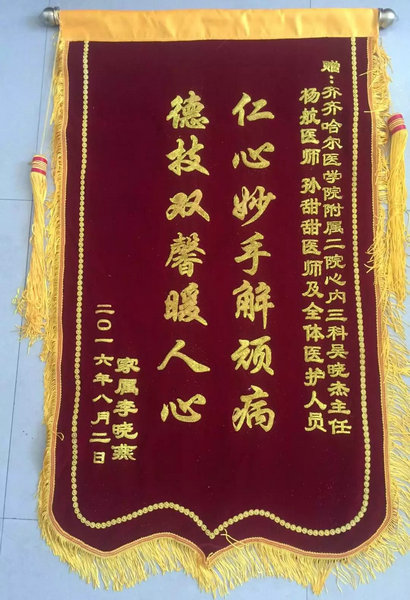 赠：齐齐哈尔医学院附属二院心内三科吴晓杰主任
杨航医师 孙甜甜医师及全体医护人员
仁心妙手解顽病
德技双馨暖人心
家属李晓燕
二〇一六年八月二日